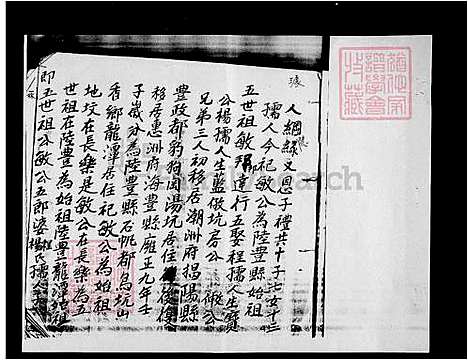 人綱緣又恩子禮共十子七女十三
孺人今祀敏公為陸豐縣始祖
五世祖敏 公 達行五娶程孺人生寶
公楊孺人生藍傲坑房公 敬公
兄弟三人初移居潮洲府揭陽縣
豐政都豹狗凹湯坑居住 後復
移居惠洲府海豐縣雍正九年壬
子歲分為陸豐縣石帆都為坑山
香鄉龍潭居住祀敏公為始祖
地坟在長樂是敏公在長樂為五
世祖在陸豐為始祖陸豐龍潭始祖
即五世祖公敏公五郎婆 楊氏孺人